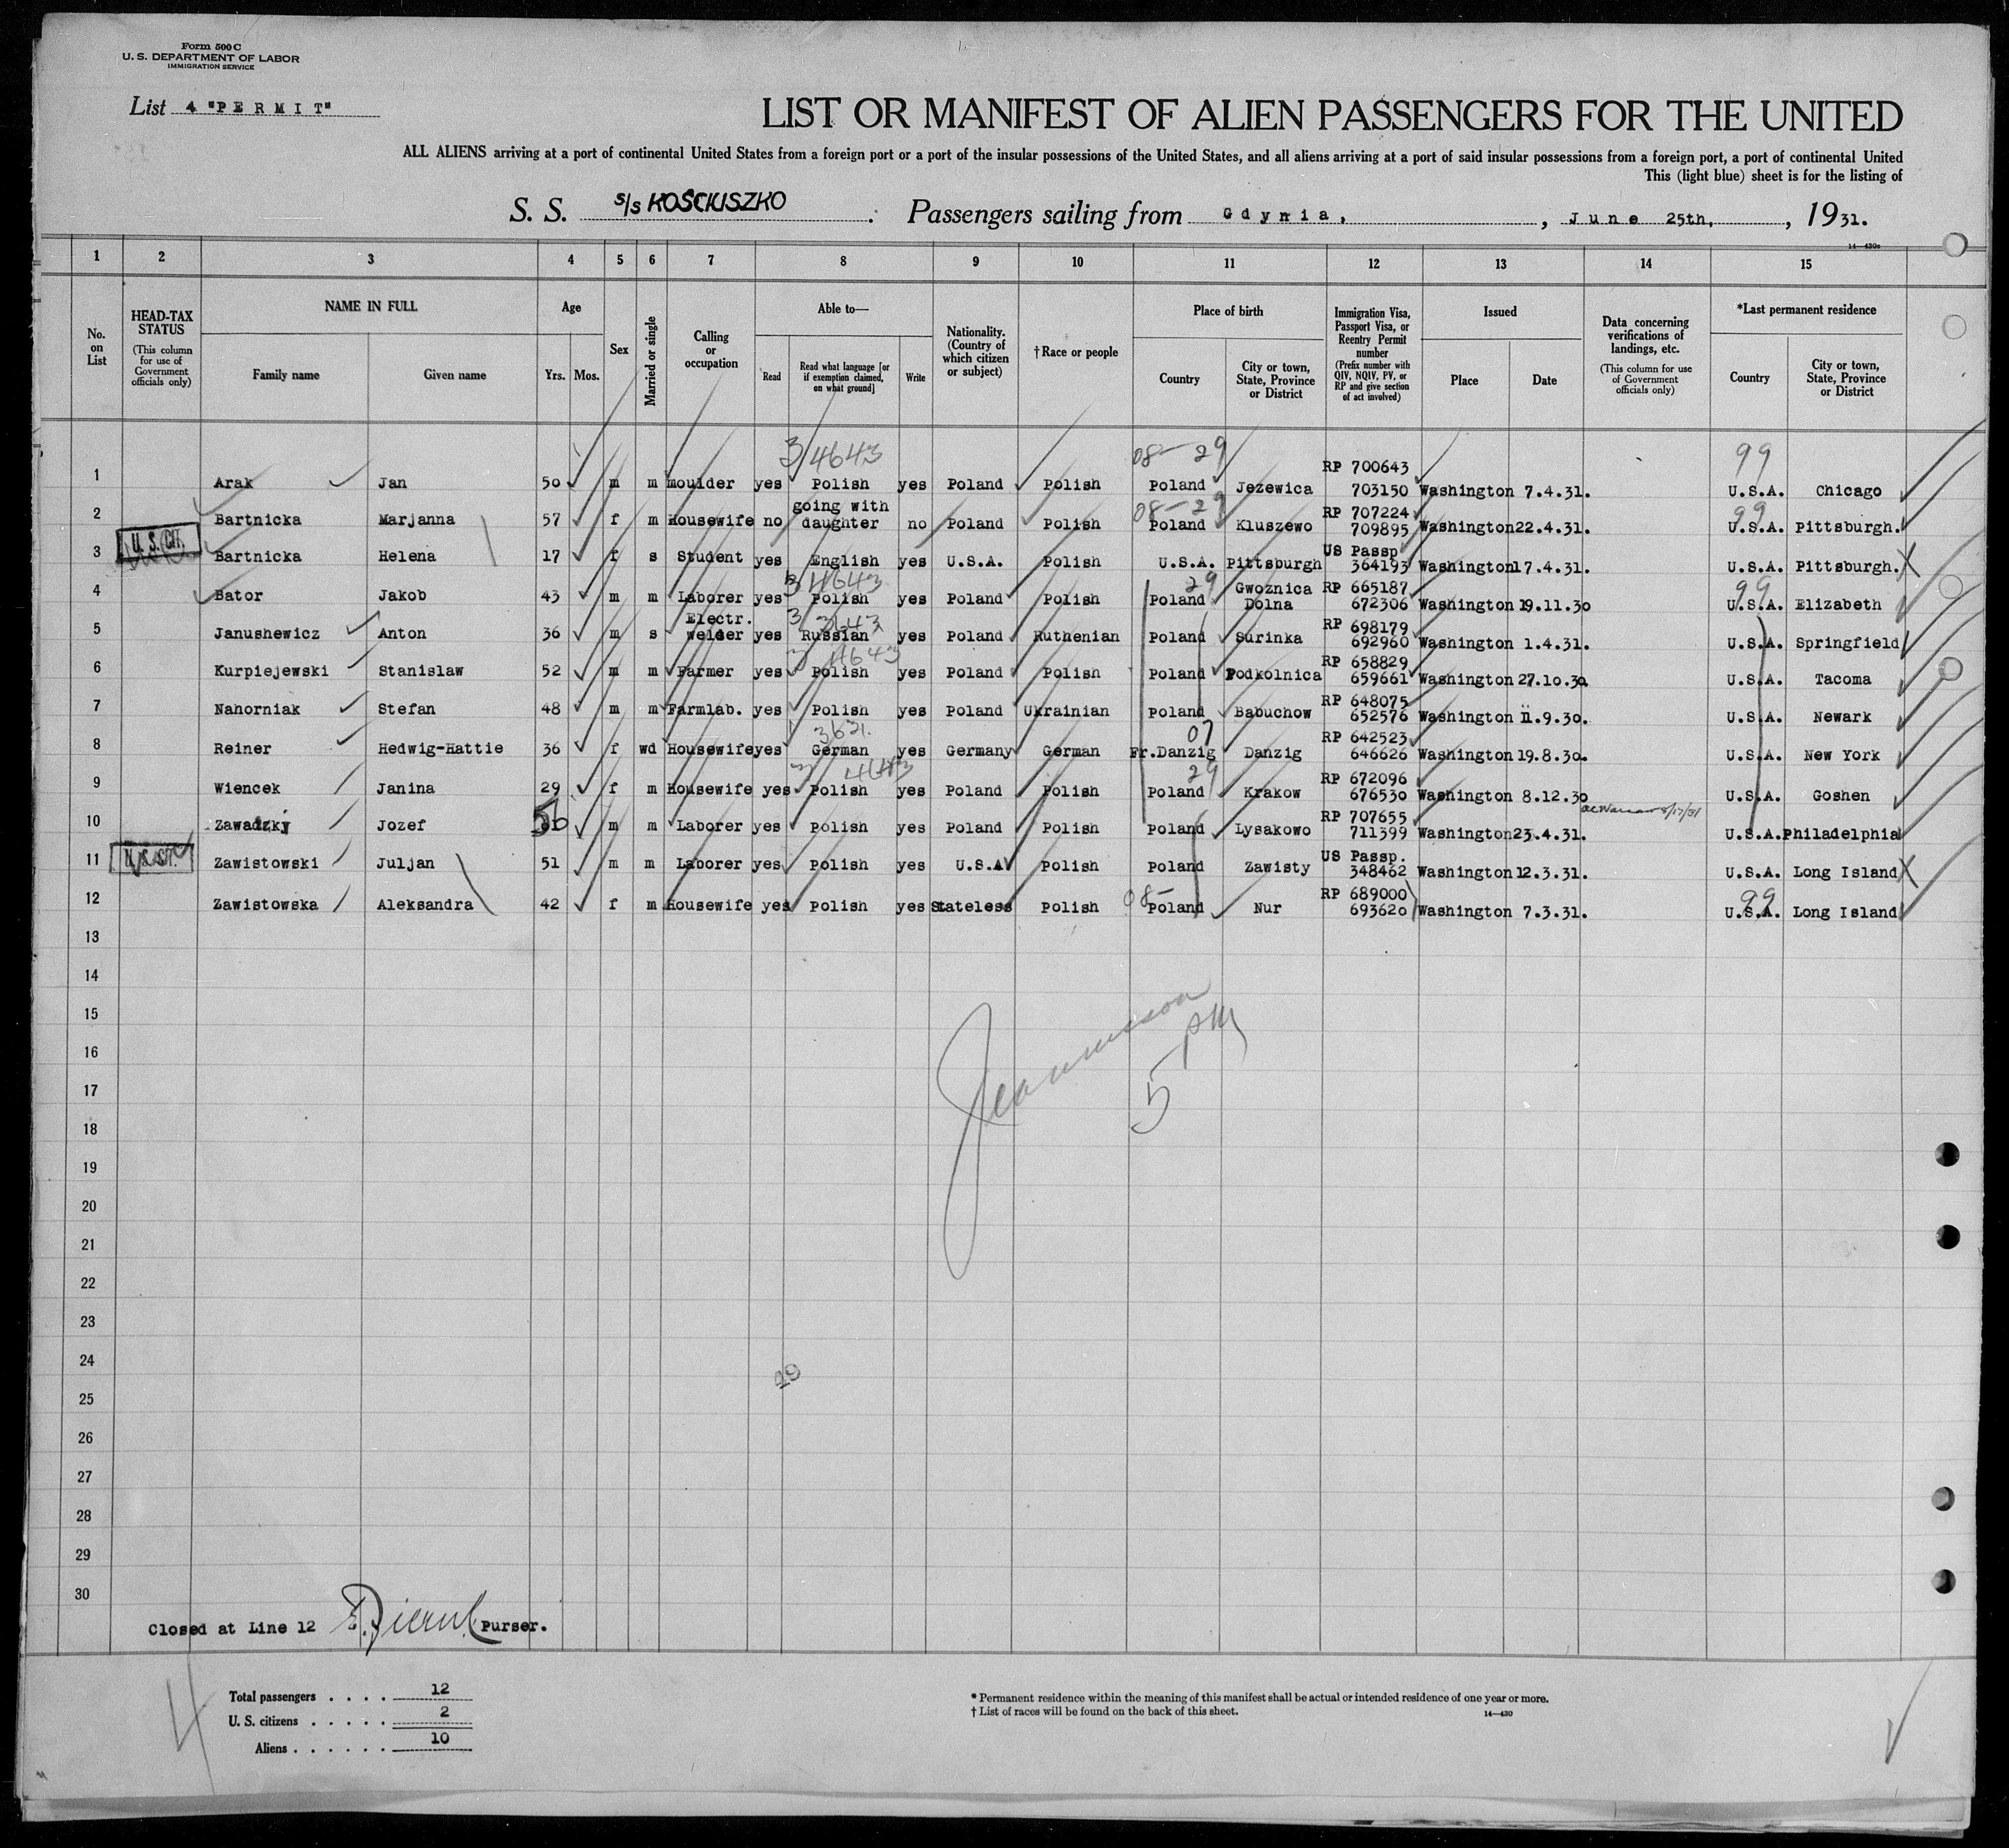 Form 500 C
U. S. DEPARTMENT OF LABOR
IMMIGRATION SERVICE
List 4 "PERMIT"
LIST OR MANIFEST OF ALIEN PASSENGERS FOR THE UNITED
ALL ALIENS arriving at a port of continental United States from a foreign port or a port of the insular possessions of the United States, and all aliens arriving at a port of said insular possessions from a foreign port, a port of continental United
This (light blue) sheet is for the listing of
S. S. s/s KOŚCIUSZKO. Passengers sailing from Gdynia, , June 25th, , 1931.
14—430a
1 2 3 4 5 6 7 8 9 10 11 12 13 14 15
No. on List
HEAD-TAX STATUS (This column for use of Government officials only)
NAME IN FULL
Family name Given name
Age
Yrs. Mos.
Sex
Married or single
Calling or occupation
Able to—
Read Read what language [or if exemption claimed, on what ground] Write
Nationality. (Country of which citizen or subject)
† Race or people
Place of birth
Country City or town, State, Province or District
Immigration Visa, Passport Visa, or Reentry Permit number (Prefix number with QIV, NQIV, PV, or RP and give section of act involved)
Issued
Place Date
Data concerning verifications of landings, etc. (This column for use of Government officials only)
*Last permanent residence
Country City or town, State, Province or District
3/4643 08-29 99
1 Arak Jan 50 m m moulder yes Polish yes Poland Polish Poland Jezewica RP 700643 703150 Washington 7.4.31. U.S.A. Chicago
08-29 99
2 Bartnicka Marjanna 57 f m Housewife no going with daughter no Poland Polish Poland Kluszewo RP 707224 709895 Washington 22.4.31. U.S.A. Pittsburgh.
U.S. CIT.
3 Bartnicka Helena 17 f s Student yes English yes U.S.A. Polish U.S.A. Pittsburgh US Passp 364193 Washington 17.4.31. U.S.A. Pittsburgh.
3 4643 29 99
4 Bator Jakob 43 m m Laborer yes Polish yes Poland Polish Poland Gwoznica Dolna RP 665187 672306 Washington 19.11.30 U.S.A. Elizabeth
3 3643
5 Janushewicz Anton 36 m s Electr. welder yes Russian yes Poland Ruthenian Poland Surinka RP 698179 692960 Washington 1.4.31. U.S.A. Springfield
3 4643
6 Kurpiejewski Stanislaw 52 m m Farmer yes Polish yes Poland Polish Poland Podkolnica RP 658829 659661 Washington 27.10.30. U.S.A. Tacoma
7 Nahorniak Stefan 48 m m Farmlab. yes Polish yes Poland Ukrainian Poland Babuchow RP 648075 652576 Washington 11.9.30. U.S.A. Newark
07
8 Reiner Hedwig-Hattie 36 f wd Housewife yes German yes Germany German Fr.Danzig Danzig RP 642523 646626 Washington 19.8.30. U.S.A. New York
3 4643 29
9 Wiencek Janina 29 f m Housewife yes Polish yes Poland Polish Poland Krakow RP 672096 676530 Washington 8.12.30 U.S.A. Goshen
10 Zawadzky Jozef 56 m m Laborer yes Polish yes Poland Polish Poland Lysakowo RP 707655 711399 Washington 23.4.31. U.S.A. Philadelphia
11 Zawistowski Juljan 51 m m Laborer yes Polish yes U.S.A Polish Poland Zawisty US Passp. 348462 Washington 12.3.31. U.S.A. Long Island
08- 99
12 Zawistowska Aleksandra 42 f m Housewife yes Polish yes Stateless Polish Poland Nur RP 689000 693620 Washington 7.3.31. U.S.A. Long Island
13
14
15
16
17
18
19
20
21
22
23
24
25
26
27
28
29
30
5 PM
Closed at Line 12 Purser.
4
Total passengers . . . . 12
U. S. citizens . . . . . 2
Aliens . . . . . . 10
* Permanent residence within the meaning of this manifest shall be actual or intended residence of one year or more.
† List of races will be found on the back of this sheet.
14—430